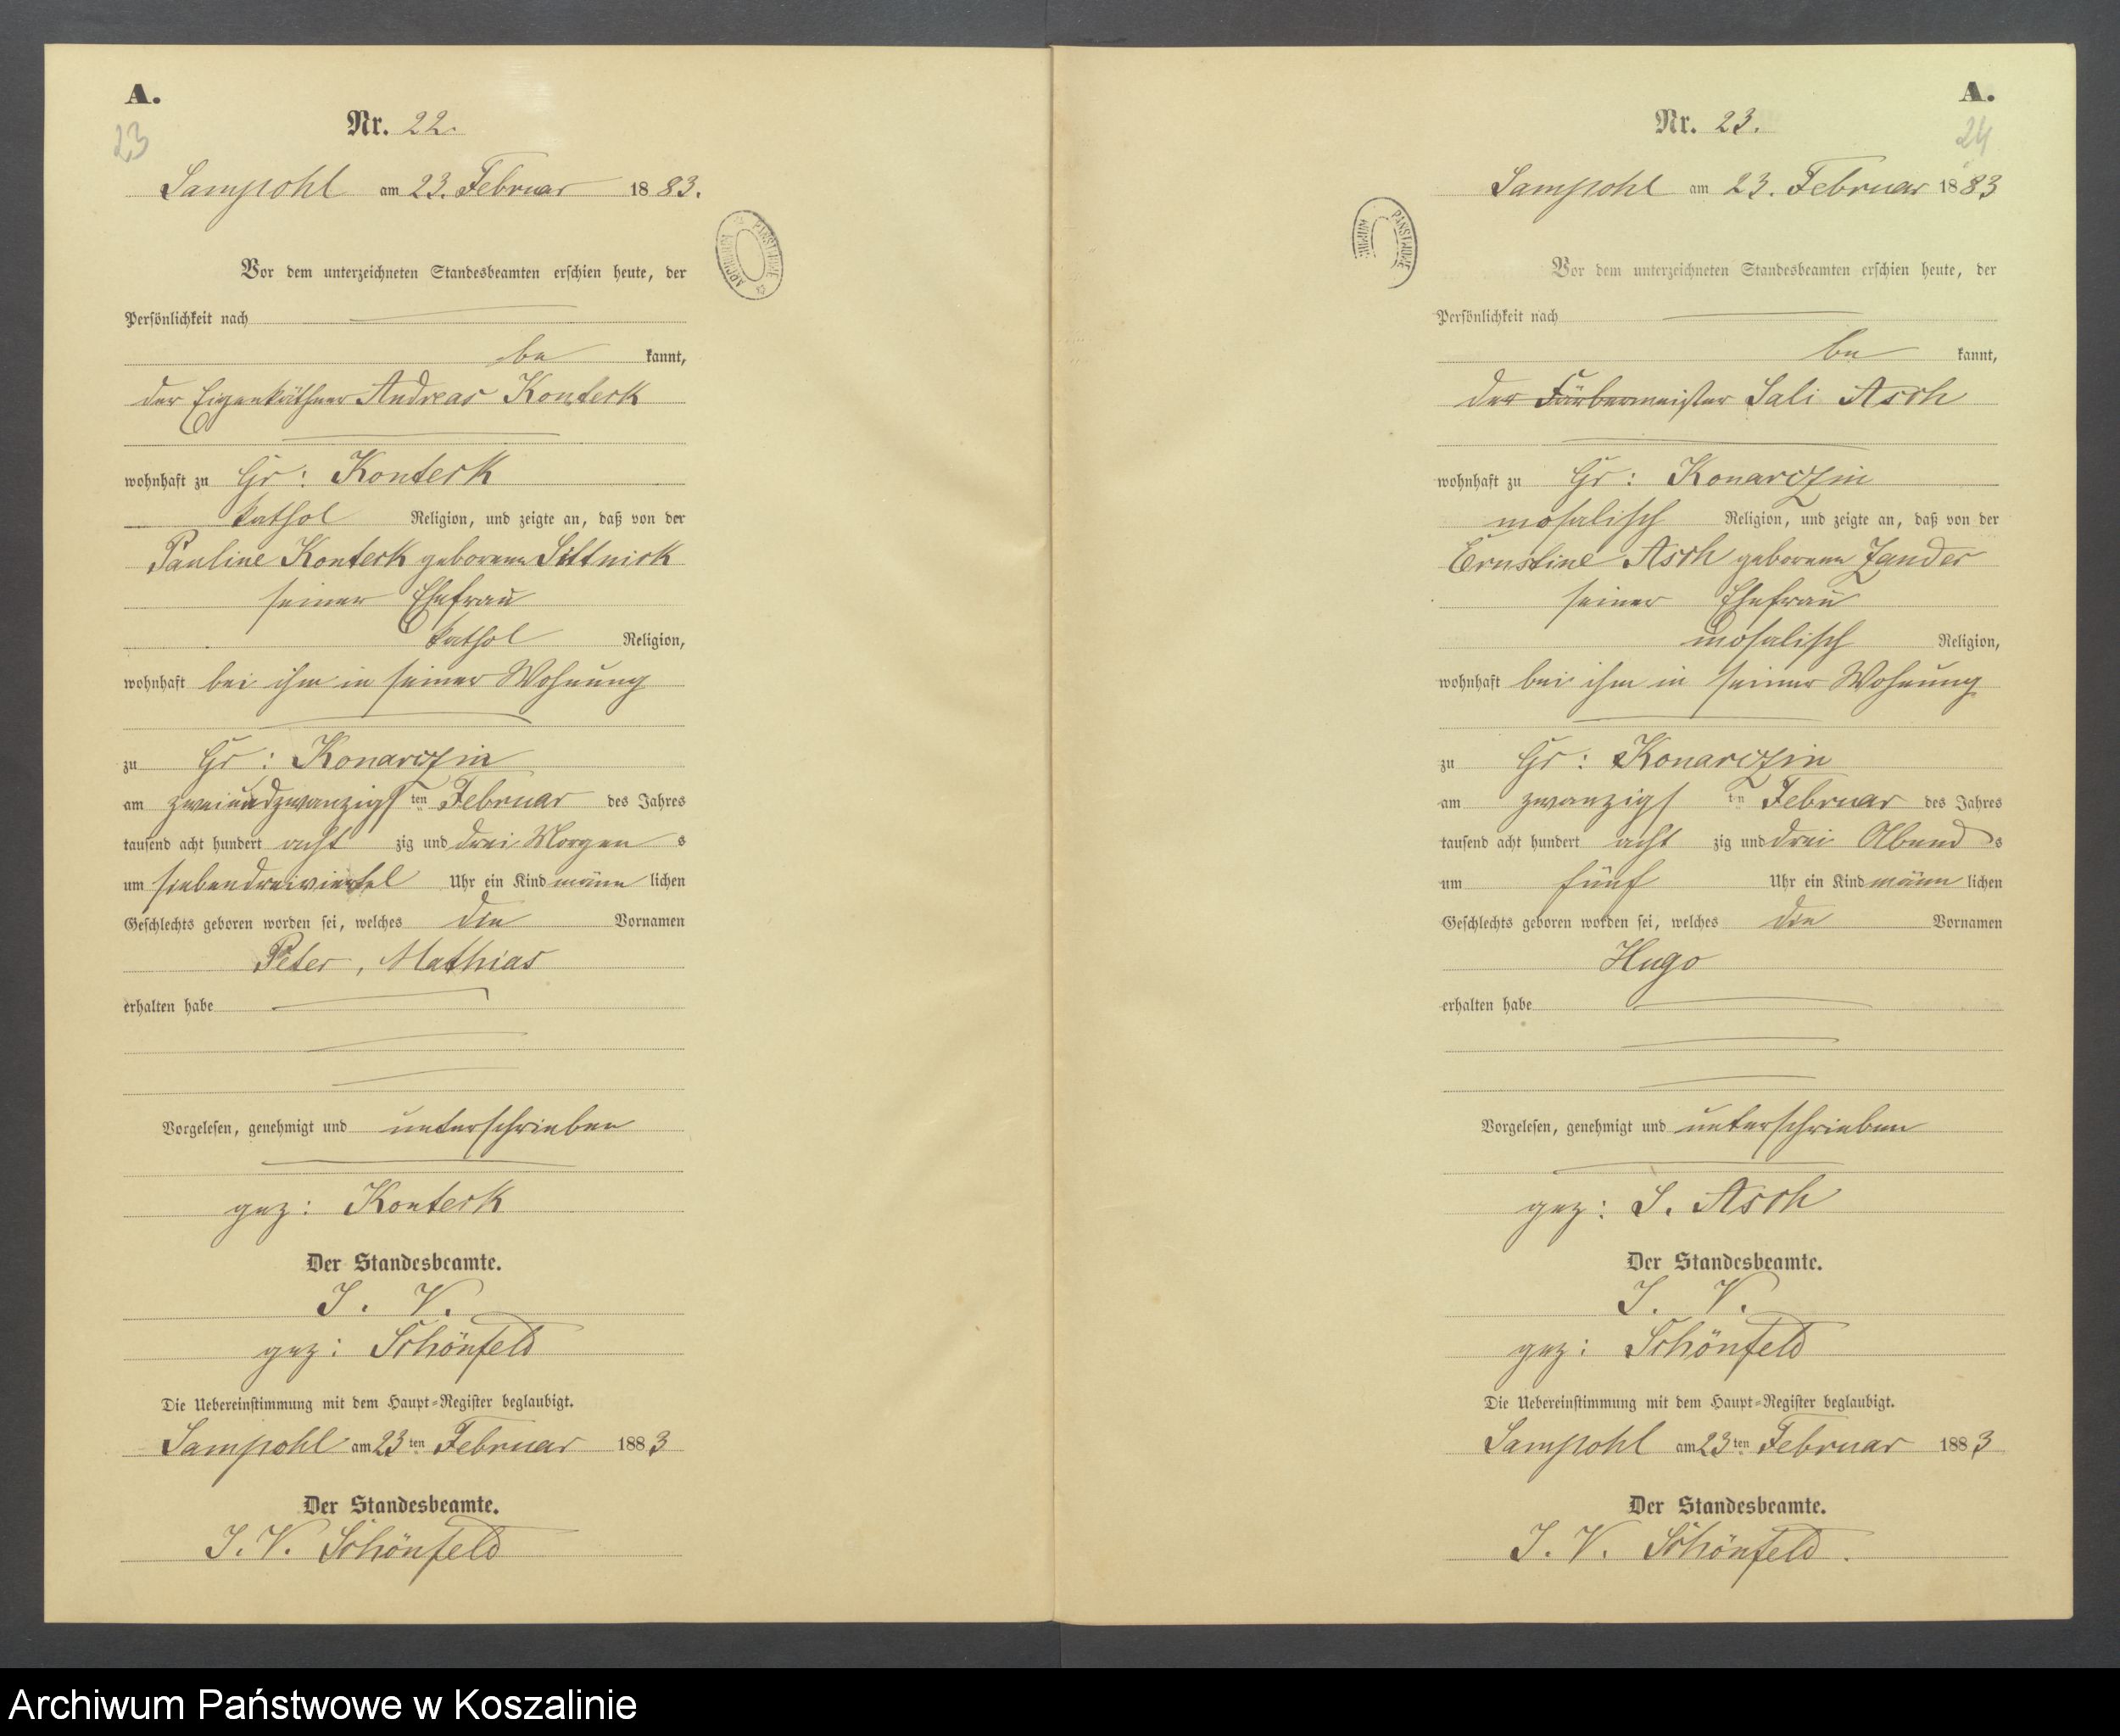 A.
23
Nr. 22.
Sampohl am 23. Februar 1883.
ARCHIWUM PAŃSTWOWE
Vor dem unterzeichneten Standesbeamten erschien heute, der
Persönlichkeit nach
be kannt,
der Eigenkäthner Andreas Konterk
wohnhaft zu Gr: Konterk
kathol Religion, und zeigte an, daß von der
Pauline Konterk geborenen
seiner Ehefrau
kathol Religion,
wohnhaft bei ihm in seiner Wohnung
zu Gr: Konarczin
am zweiundzwanzigs ten Februar des Jahres
tausend acht hundert acht zig und drei Morgen s
um siebendreiviertel Uhr ein Kind männ lichen
Geschlechts geboren worden sei, welches die Vornamen
Peter, Mathias
erhalten habe
Vorgelesen, genehmigt und unterschrieben
gez: Konterk
Der Standesbeamte.
J. V.
gez: Schönfeld
Die Uebereinstimmung mit dem Haupt-Register beglaubigt.
Sampohl am 23 ten Februar 1883
Der Standesbeamte.
J. V. Schönfeld
A.
24
Nr. 23.
Sampohl am 23. Februar 1883
PAŃSTWOWE
Vor dem unterzeichneten Standesbeamten erschien heute, der
Persönlichkeit nach
be kannt,
der Färbermeister Sali Asch
wohnhaft zu Gr: Konarczin
mosaisch Religion, und zeigte an, daß von der
Ernstine Asch geborenen Zander
seiner Ehefrau
mosaisch Religion,
wohnhaft bei ihm in seiner Wohnung
zu Gr: Konarczin
am zwanzigs ten Februar des Jahres
tausend acht hundert acht zig und drei Abend s
um fünf Uhr ein Kind männ lichen
Geschlechts geboren worden sei, welches die Vornamen
Hugo
erhalten habe
Vorgelesen, genehmigt und unterschrieben
gez: S. Asch
Der Standesbeamte.
J. V.
gez: Schönfeld
Die Uebereinstimmung mit dem Haupt-Register beglaubigt.
Sampohl am 23 ten Februar 1883
Der Standesbeamte.
J. V. Schönfeld.
Archiwum Państwowe w Koszalinie